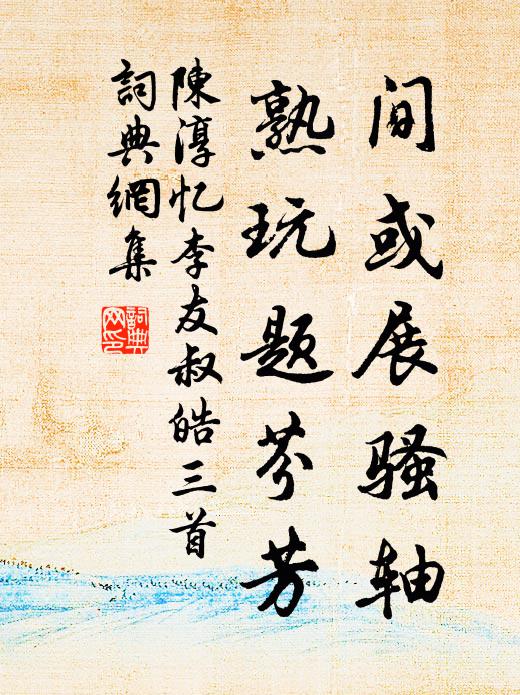 间或展骚轴
熟玩题芬芳
陳淳忆李友叔皓三首
詞典網集
詞典
网印